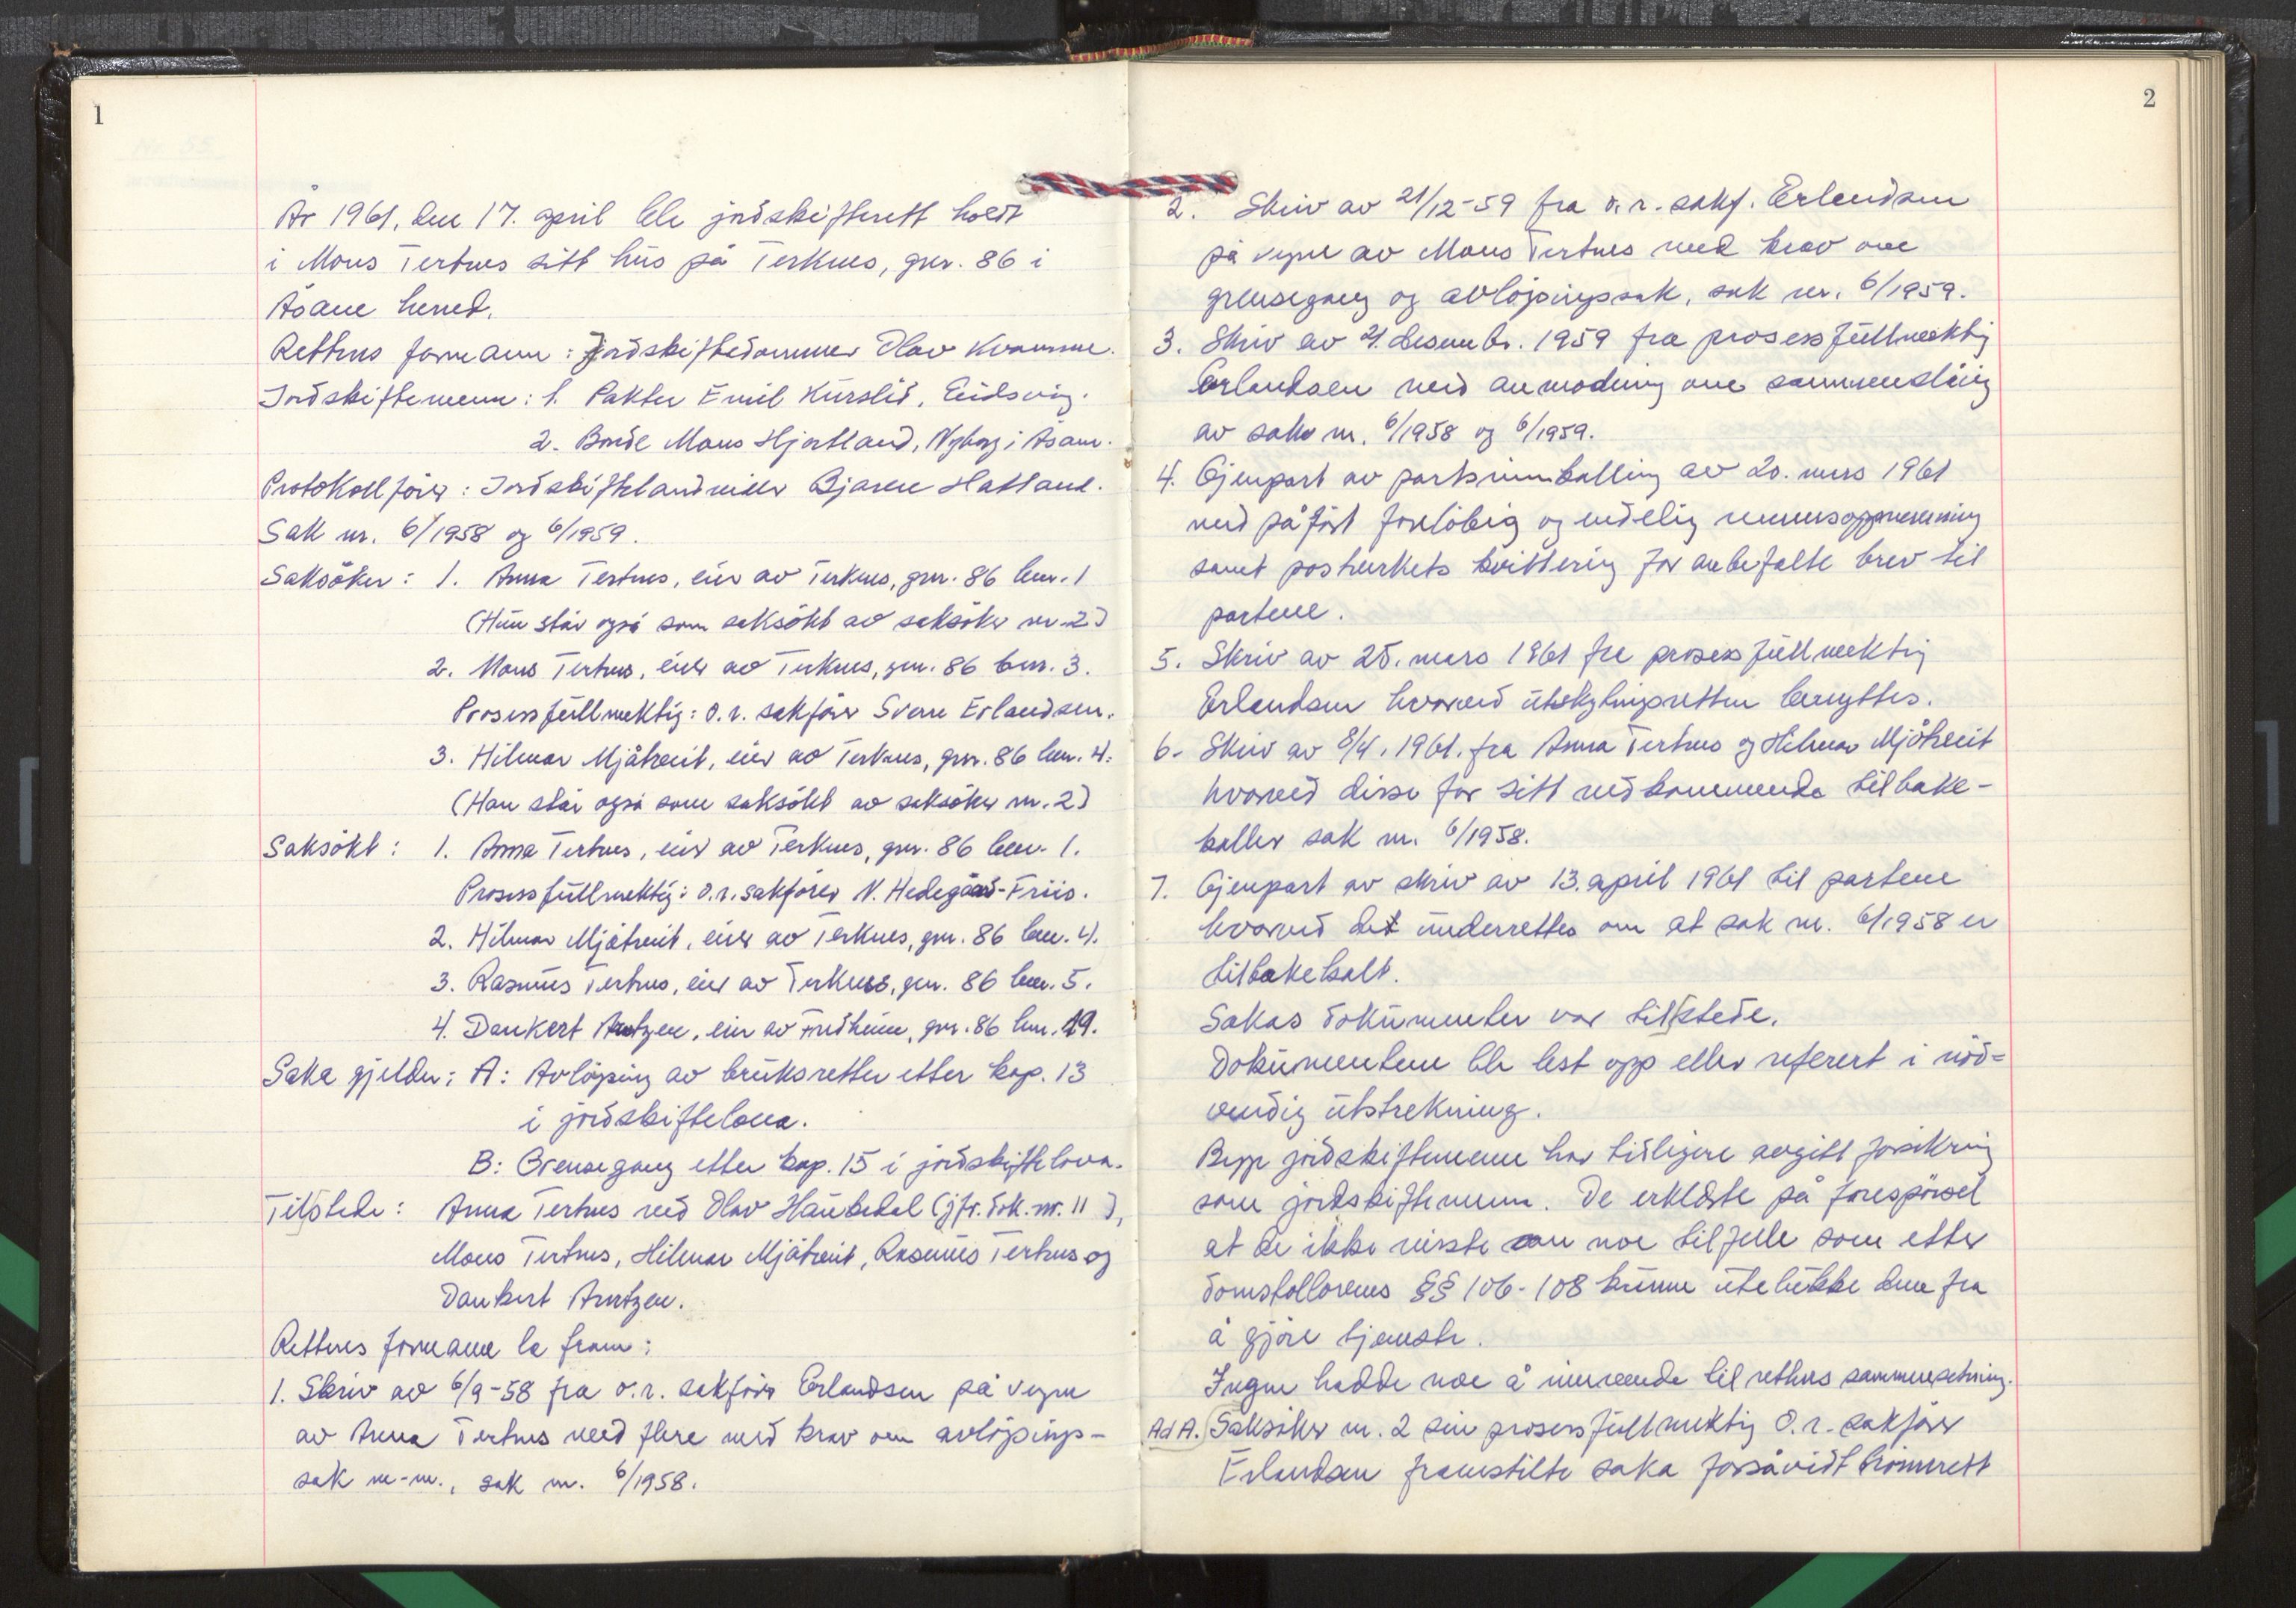 1
År 1961, den 17. april ble jordskifterett holdt
i Mons Tertnes sitt hus på Terknes, gnr. 86 i
Åsane herred.
Rettens formann: Jordskiftedommer Olav Kvamme.
Jordskiftemenn: 1. Pakter Emil Kurslid, Eidsvåg.
2. Bonde Mons Hjortland, Nyborg i Åsane.
Protokollfører: Jordskiftelandmåler Bjarne Hatland.
Sak nr. 6/1958 og 6/1959.
Saksöker: 1. Anna Tertnes, eier av Terknes, gnr. 86 bnr. 1
(Hun står også som saksökt av saksöker nr. 2)
2. Mons Tertnes, eier av Terknes, gnr. 86 bnr. 3.
Prosessfullmektig: o.r. sakförer Sverre Erlandsen.
3. Hilmar Mjåtveit, eier av Terknes, gnr. 86 bnr. 4.
(Han står også som saksökt av saksöker nr. 2)
Saksökt: 1. Anna Tertnes, eier av Terknes, gnr. 86 bnr. 1.
Prosessfullmektig: o.r. sakförer N. Hedegård-Friis.
2. Hilmar Mjåtveit, eier av Terknes, gnr. 86 bnr. 4.
3. Rasmus Tertnes, eier av Terknes, gnr. 86 bnr. 5.
4. Dankert Arntzen, eier av Fredheim, gnr. 86 bnr. 19.
Saka gjelder: A: Avlöysing av bruksretter etter kap. 13
i jordskiftelova.
B: Grensegang etter kap. 15 i jordskiftelova.
Tilstede: Anna Tertnes ved Olav Haukedal (jfr. dok. nr. 11),
Mons Tertnes, Hilmar Mjåtveit, Rasmus Tertnes og
Dankert Arntzen.
Rettens formann la fram:
1. Skriv av 6/9-58 fra o.r. sakförer Erlandsen på vegne
av Anna Tertnes med flere med krav om avlöpings-
sak m.m., sak nr. 6/1958.
2
2. Skriv av 21/12-59 fra o.r. sakf. Erlandsen
på vegne av Mons Tertnes med krav om
grensegang og avlöpingssak, sak nr. 6/1959.
3. Skriv av 21. desembr. 1959 fra prosessfullmektig
Erlandsen med anmodning om sammenslåing
av sak nr. 6/1958 og 6/1959.
4. Gjenpart av partsinnkalling av 20. mars 1961
med påfört forelöbig og endelig
samt postverkets kvittering for anbefalte brev til
partene.
5. Skriv av 25. mars 1961 fra prosessfullmektig
Erlandsen hvorved utskytningsretten benyttes.
6. Skriv av 8/4. 1961. fra Anna Tertnes og Hilmar Mjåtveit
hvorved disse for sitt vedkommende tilbake-
kaller sak nr. 6/1958.
7. Gjenpart av skriv av 13. april 1961 til partene
hvorved det underrettes om at sak nr. 6/1958 er
tilbakekalt.
Sakas dokumenter var tilstede.
Dokumentene ble lest opp eller referert i nöd=
vendig utstrekning.
Begge jordskiftemenn har tidligere avgitt forsikring
som jordskiftemenn. De erklærte på forespörsel
at de ikke visste om noe tilfelle som etter
domstollovens §§ 106-108 kunne utelukke dem fra
å gjöre tjeneste.
Ingen hadde noe å innvende til rettens sammensetning.
Ad A. Saksöker nr. 2 sin prosessfullmektig O.r. sakförer
Erlandsen framstilte saka forsåvidt